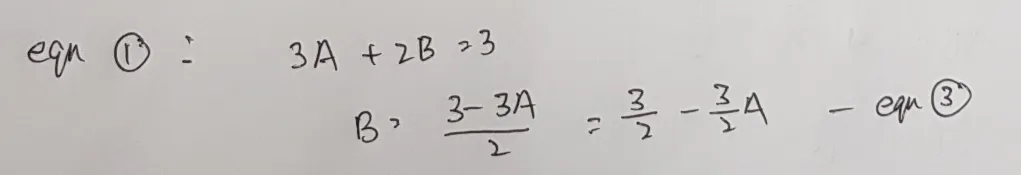 eqn ① : 3A + 2B = 3
B = (3 - 3A)/2 = 3/2 - 3/2 A - eqn ③